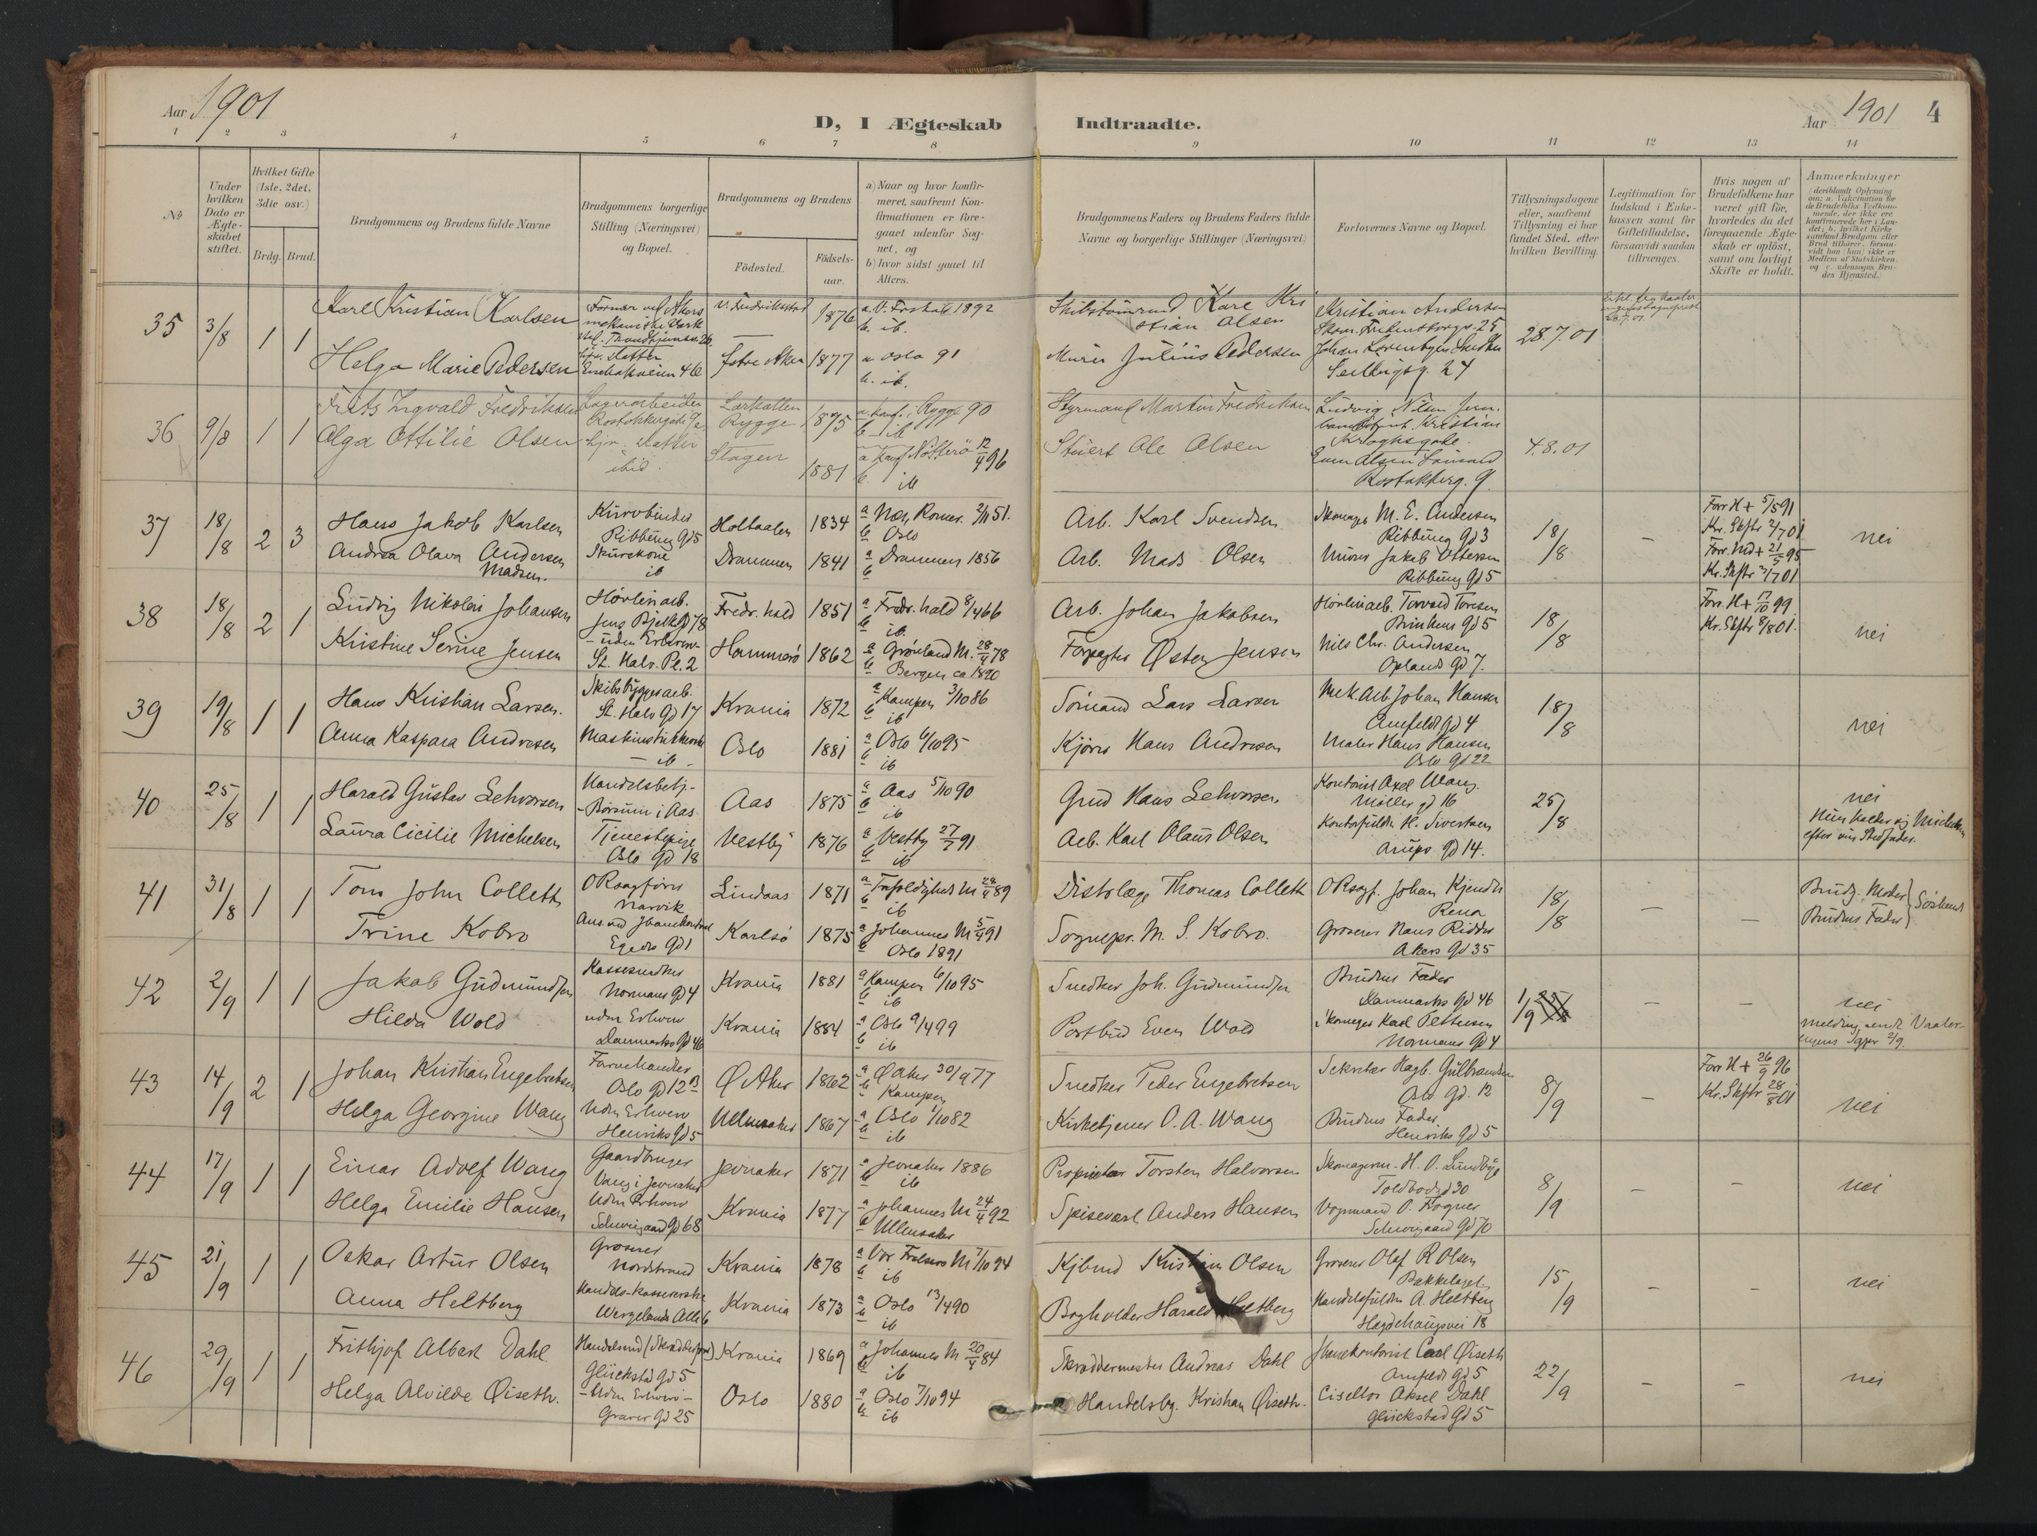 Aar 1901
D, I Ægteskab Indtraadte.
Aar 1901
4
1 2 3 4 5 6 7 8 9 10 11 12 13 14
No
Under hvilken Dato er Ægteskabet stiftet.
Hvilket Gifte (1ste, 2det, 3die osv.)
Brdg. Brud.
Brudgommens og Brudens fulde Navne
Brudgommens borgerlige Stilling (Næringsvei) og Bopæl.
Brudgommens og Brudens
Födested.
Födselsaar.
a) Naar og hvor konfirmeret, saafremt Konfirmationen er foregaaet udenfor Sognet, og
b) hvor sidst gaaet til Alters.
Brudgommens Faders og Brudens Faders fulde Navne og borgerlige Stillinger (Næringsvei)
Forlovernes Navne og Bopæl.
Tillysningsdagene eller, saafremt Tillysning ei har fundet Sted, efter hvilken Bevilling.
Legitimation for Indskud i Enkekassen samt for Giftetilladelse, forsaavidt saadan tiltrænges.
Hvis nogen af Brudefolkene har været gift för, hvorledes da det foregaaende Ægteskab er oplöst, samt om lovligt Skifte er holdt.
Anmerkninger
35 3/8 1 1
Karl Kristian Karlsen
V. Fredriksstad 1876
b. ib.
Kristian Andersen
28.7.01
Helga Marie Pedersen
Østre Aker 1877 a Oslo 91
b. ib.
Murer Julius Pedersen
36 9/8 1 1
Frits Ingvald Fredriksen
Lagerarbeider
Rygge 1875
b ib
Styrmand Martin Fredriksen
Olga Ottilie Olsen
ibid.
1881
b ib
Stuert Ole Olsen
4.8.01
37 18/8 2 3
Hans Jakob Karlsen
Kurvbinder
Ribbung gd 5
Holtaalen 1834
b Oslo
Arb. Karl Svendsen
Skomager M. E. Andersen
Ribbung gd 3
18/8 –
Forr. H + 5/5 91
Kr. Skftr 2/7 01
nei
Andrea Olava Andersen
Madsen.
ib
Drammen 1841 a Drammen 1856
b
Arb. Mads Olsen
Murer Jakob Ottersen
Ribbung gd 5
Kr. Skftr 2/7 01
38 18/8 2 1
Ludvig Nikolai Johansen
Høvleriarb.
Jens Bjelkes gd 78
Fredr.hald 1851 a Fredr.hald 8/4 66
b ib.
Arb. Johan Jakobsen
Brinkens gd 5
18/8
Forr. H + 17/10 99.
Kr. Skftr 8/8 01.
nei
Kristine Serine Jensen
– uden Erhverv –
St. Halv. Pl. 2
Hammerö 1862 a Grønland M. 28/4 78
b Bergen ca 1890
Forpagter Østen Jensen
Nils Chr. Andersen
Oplands gd 7.
39 19/8 1 1
Hans Kristian Larsen.
Skibsbyggerarb.
St. Halv. gd 17
Krania 1872 a Kampen 3/10 86
b ib
Sømand Lars Larsen
Mek. Arb. Johan Hansen
18/8
nei
Anna Kaspara Andresen
– ib –
Oslo 1881 a Oslo 6/10 95
b ib
Kjører Hans Andresen
Maler Hans Hansen
Oslo gd 22
40 25/8 1 1
Handelsbetj.
Aas 1875 a Aas 5/10 90
b ib
Kontorist Axel Wang
Møller gd 16
25/8
nei
Laura Cicilie Michelsen
Tjenestepige
Oslo gd 18
Vestby 1876 a Vestby 27/9 91
b ib
Arb. Karl Olaus Olsen
Kontorfuldm. H. Sivertsen
Arups gd 14.
41 31/8 1 1
Tom John Collett
ORsagfører
Narvik
Lindaas 1871 a Trefoldighed M 28/4 89
b ib
Distrlæge Thomas Collett
ORsagf. Johan Kjendli
Rena
18/8 – –
Brudg. Moder
Brudens Fader
Søskend
Trine Kobro
Egedes gd 1
Karlsö 1875 a Johannes M 5/4 91
b Oslo 1891
Sognepr. M. S. Kobro.
Grosserer Hans Ridder
Akers gd 35
42 2/9 1 1
Jakob Gudmundsen
Normans gd 4
Krania 1881 a Kampen 6/10 95
b ib
Snedker Joh. Gudmundsen
Brudens Fader
Danmarks gd 46
1/9 – –
nei
Hilda Wold
uden Erhverv
Danmarks gd 46
Krania 1884 a Oslo 9/4 99
b ib
Postbud Even Wold
Skomager Karl Pettersen
Normans gd 4
43 14/9 2 1
Johan Kristian Engebretsen
Farvehandler
Oslo gd 12 B
Ø Aker 1862 a Ø Aker 30/9 77
b Kampen
Snedker Peder Engebretsen
Sekretær Hagb. Gulbrandsen
Oslo gd. 12
8/9 –
Forr. H + 26/9 96
Kr. Skftr 28/8 01
nei
Helga Georgine Wang
Uden Erhverv
Henriks gd 5
Ullensaker 1867 a Oslo 1/10 82
b ib
Kirketjener O. A. Wang
Brudens Fader
Henriks gd 5
44 17/9 1 1
Einar Adolf Wang
Gaardbruger
Vang i Jevnaker
Jevnaker 1871 a Jevnaker 1886
b ib
Proprietær Torsten Halvorsen
Skomagerm. H. O. Lundbye
Toldbodgd 30
8/9 – –
nei
Helga Emilie Hansen
Uden Erhverv
Schweigaard gd 68
Krania 1877 a Johannes M 24/4 92
b Ullensaker
Spisevært Anders Hansen
Vognmand O. Fogner
Schweigaard gd 70
45 21/9 1 1
Oskar Artur Olsen
Grosserer
Nordstrand
Krania 1878 a Vor Frelsers M 7/10 94
b ib
Kjbmd Kristian Olsen
Grosserer Olaf R Olsen
Bakkelaget
15/9 – –
nei
Anna Heltberg
Wergelands Allé 6
Krania 1873 a Oslo 13/4 90
b ib
Bogholder Harald Heltberg
Handelsfuldm. A. Heltberg
Hægdehaugsvei 18
46 29/9 1 1
Frithjof Albert Dahl
Handelsmd (Skrædderforr.)
Glückstad gd 5
Krania 1869 a Johannes M 20/4 84
b ib
Skræddermester Andreas Dahl
Carl Øiseth
Arnfeldts gd 5
22/9 – –
nei
Helga Alvilde Øiseth.
– Uden Erhverv –
Graver gd 25
Oslo 1880 a Oslo 7/10 94
b ib
Handelsbg. Kristian Øiseth.
Ciselør Aksel Dahl
Glückstad gd 5